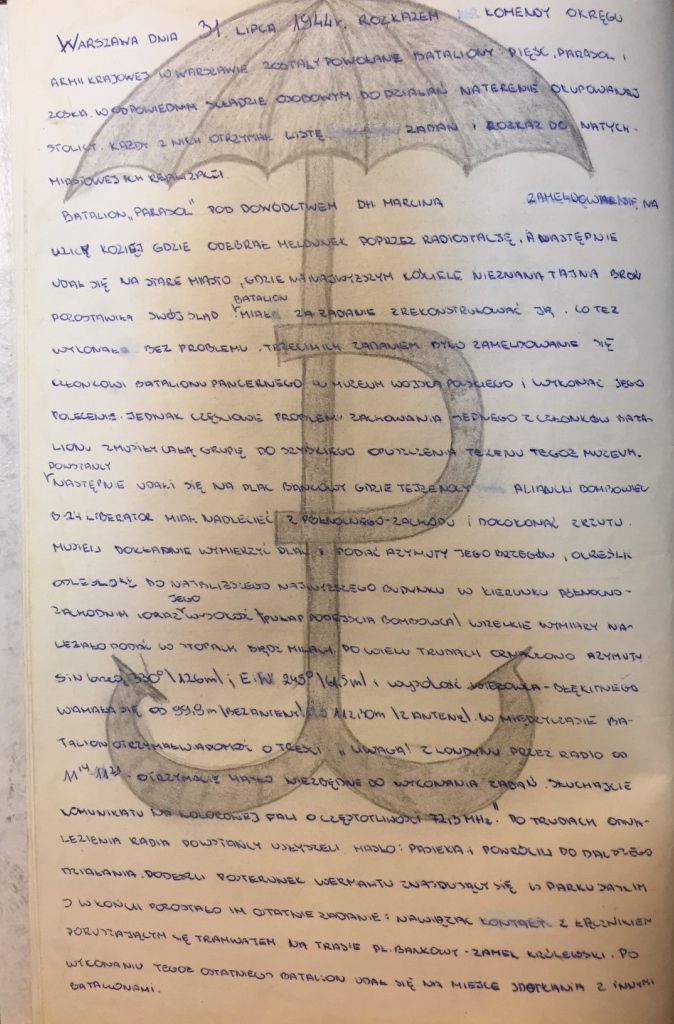 WARSZAWA DNIA 31 LIPCA 1944r. ROZKAZEM KOMENDY OKRĘGU
ARMII KRAJOWEJ W WARSZAWIE ZOSTAŁY POWOŁANE BATALIONY: PIĘŚĆ, PARASOL I
ZOŚKA. W ODPOWIEDNIM SKŁADZIE OSOBOWYM DO DZIAŁAŃ NA TERENIE OKUPOWANEJ
STOLICY. KAŻDY Z NICH OTRZYMAŁ LISTĘ ZADAŃ I ROZKAZ DO NATYCH-
MIASTOWEJ ICH REALIZACJI.
BATALION „PARASOL" POD DOWÓDCTWEM DH MARCINA ZAMELDOWAŁ SIĘ NA
ULICĘ KOZIEJ GDZIE ODEBRAŁ MELDUNEK POPRZEZ RADIOSTACJĘ, A NASTĘPNIE
UDAŁ SIĘ NA STARE MIASTO, GDZIE NA NAJWYŻSZYM KOŚCIELE NIEZNANA TAJNA BROŃ
BATALION
POZOSTAWIŁA SWÓJ ŚLAD MIAŁ ZA ZADANIE ZREKONSTRUKOWAĆ JĄ. CO TEŻ
WYKONAŁ BEZ PROBLEMU. TRZECIM ICH ZADANIEM BYŁO ZAMELDOWANIE SIĘ
CZŁONKOWI BATALIONU PANCERNEGO W MUZEUM WOJSKA POLSKIEGO I WYKONAĆ JEGO
POLECENIE. JEDNAK CZĘŚCIOWE PROBLEMY ZACHOWANIA JEDNEGO Z CZŁONKÓW BATA-
LIONU ZMUSIŁY CAŁĄ GRUPĘ DO SZYBKIEGO OPUSZCZENIA TERENU TEGOŻ MUZEUM.
POWSTAŃCY
NASTĘPNIE UDALI SIĘ NA PLAC BANKOWY GDZIE TEJŻE NOCY ALIANCKI BOMBOWIEC
B-24 LIBERATOR MIAŁ NADLECIEĆ Z PÓŁNOCNEGO-ZACHODU I DOKONAĆ ZRZUTU.
MUSIELI DOKŁADNIE WYMIERZYĆ PLAC I PODAĆ AZYMUTY JEGO BRZEGÓW, OKREŚLIĆ
ODLEGŁOŚĆ DO NAJBLIŻSZEGO NAJWYŻSZEGO BUDYNKU W KIERUNKU PÓŁNOCNO-
JEGO
ZACHODNIM I ORAZ WYSOKOŚĆ /PUŁAP PODEJŚCIA BOMBOWCA/ WSZELKIE WYMIARY NA-
LEŻAŁO PODAĆ W STOPACH BĄDŹ MILACH. PO WIELU TRUDACH OZNACZONO AZYMUTY
S i N 330° /126m/ i E i W 245° /61,5m/ i WYSOKOŚĆ WIEŻOWCA - BŁĘKITNEGO
WAHAŁA SIĘ OD 99,9m /BEZ ANTENY/ 112,30m /Z ANTENĄ/. W MIĘDZYCZASIE BA-
TALION OTRZYMAŁ WIADOMOŚĆ O TREŚCI: „UWAGA! Z LONDYNU PRZEZ RADIO OD
11¹⁴ 11²¹. OTRZYMACIE HASŁO NIEZBĘDNE DO WYKONANIA ZADAŃ. SŁUCHAJCIE
KOMUNIKATU NA KOLOROWEJ FALI O CZĘSTOTLIWOŚCI 72,3 MHz." PO TRUDACH ODNA-
LEZIENIA RADIA POWSTAŃCY USŁYSZELI HASŁO: PASIEKA I POWRÓCILI DO DALSZEGO
DZIAŁANIA. PODESZLI POSTERUNEK WERMAHTU ZNAJDUJĄCY SIĘ W PARKU SASKIM
I W KOŃCU POZOSTAŁO IM OSTATNIE ZADANIE: NAWIĄZAĆ KONTAKT Z ŁĄCZNIKIEM
PORUSZAJĄCYM SIĘ TRAMWAJEM NA TRASIE PL. BANKOWY - ZAMEK KRÓLEWSKI. PO
WYKONANIU TEGOŻ OSTATNIEGO BATALION UDAŁ SIĘ NA MIEJSCE SPOTKANIA Z INNYMI
BATALIONAMI.